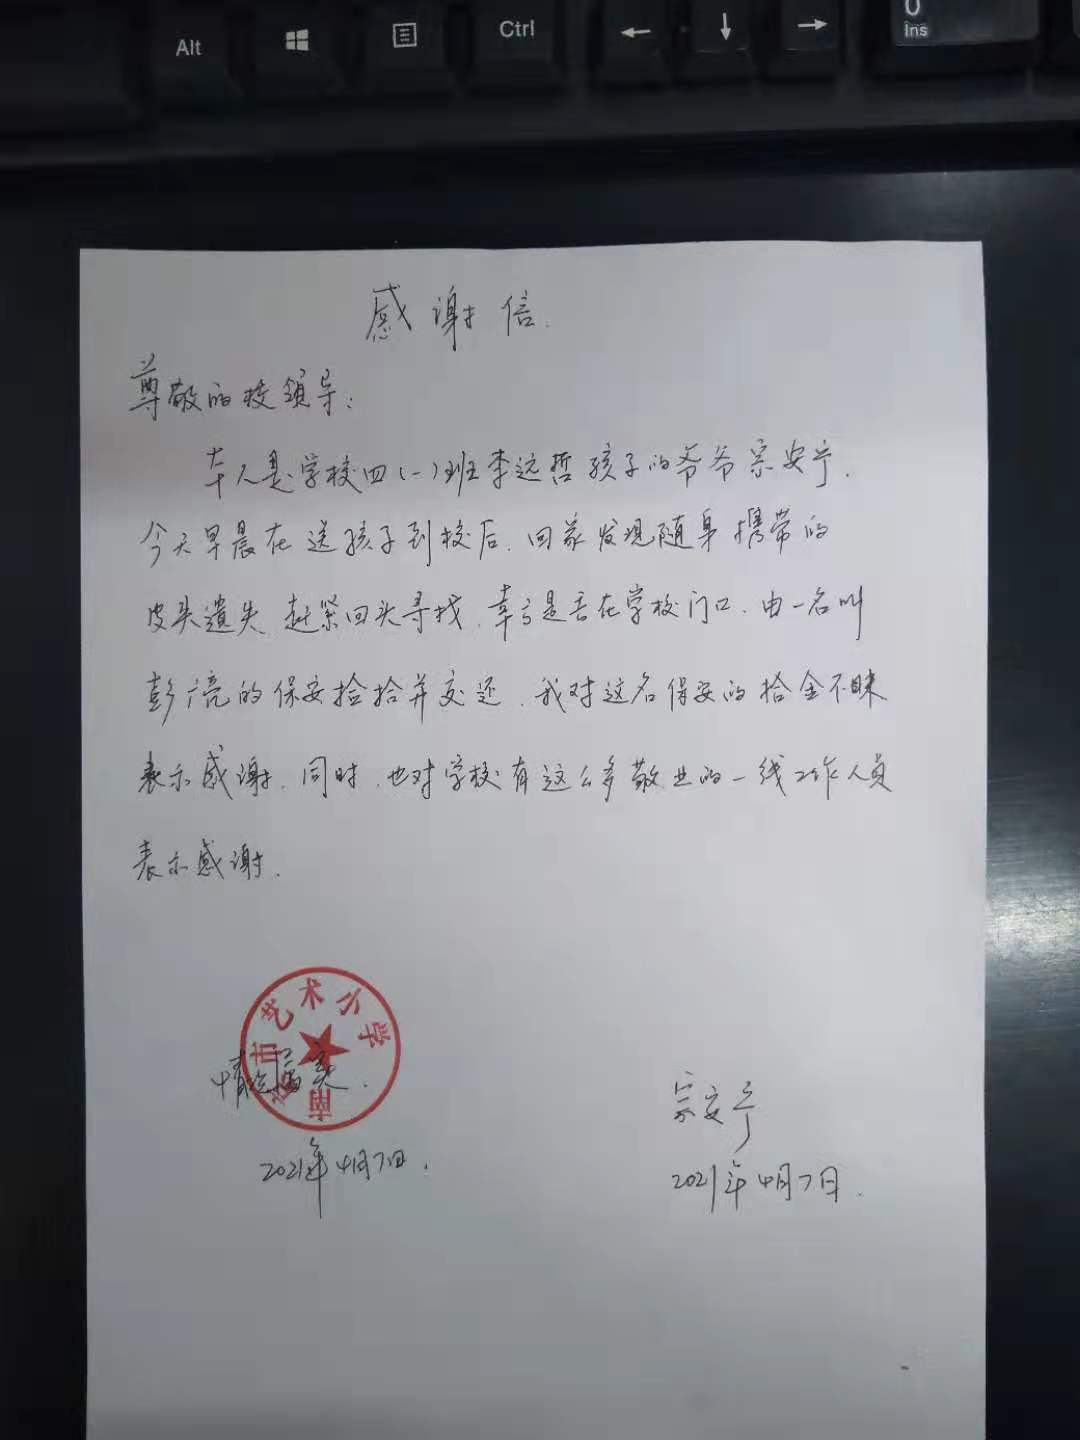 Alt
Ctrl
←
↓
→
0
Ins
感谢信.
尊敬的校领导:
本人是学校四(一)班李远哲孩子的爷爷宗安宁.
今天早晨在送孩子到校后.回家发现随身携带的
皮夹遗失.赶紧回头寻找.幸亏是丢在学校门口.由一名叫
彭亮的保安捡拾并交还.我对这名保安的拾金不昧
表示感谢.同时.也对学校有这么多敬业的一线工作人员
表示感谢.
南 市艺术小学
情况属实.
2021年4月7日.
宗安宁
2021年4月7日.